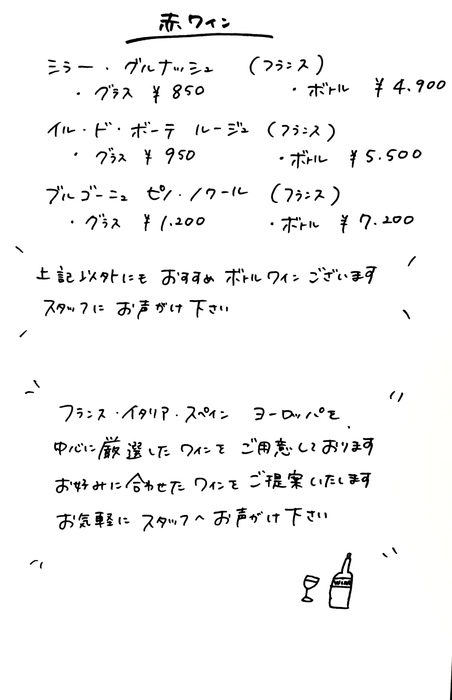 赤ワイン
シラー・グルナッシュ (フランス)
・グラス ¥850 ・ボトル ¥4.900
イル・ド・ボーテ ルージュ (フランス)
・グラス ¥950 ・ボトル ¥5.500
ブルゴーニュ ピノ・ノワール (フランス)
・グラス ¥1.200 ・ボトル ¥7.200
上記以外にも おすすめ ボトルワイン ございます
スタッフに お声がけ 下さい
フランス・イタリア・スペイン ヨーロッパを
中心に 厳選した ワインを ご用意しております
お好みに 合わせた ワインを ご提案いたします
お気軽に スタッフへ お声がけ 下さい
WINE